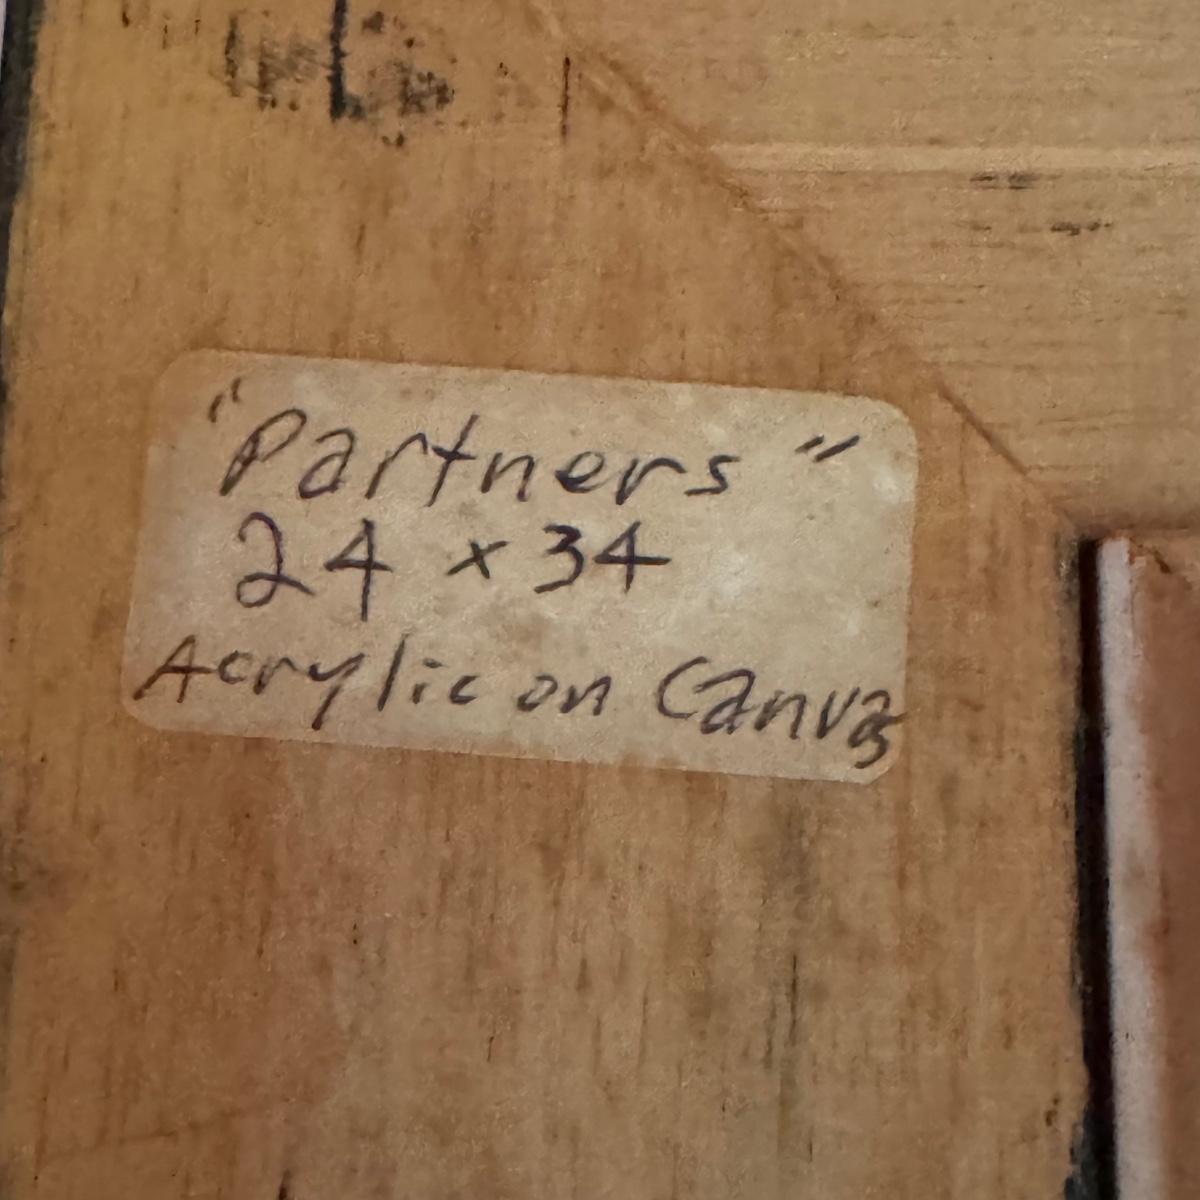 "Partners"
24 x 34
Acrylic on Canvas